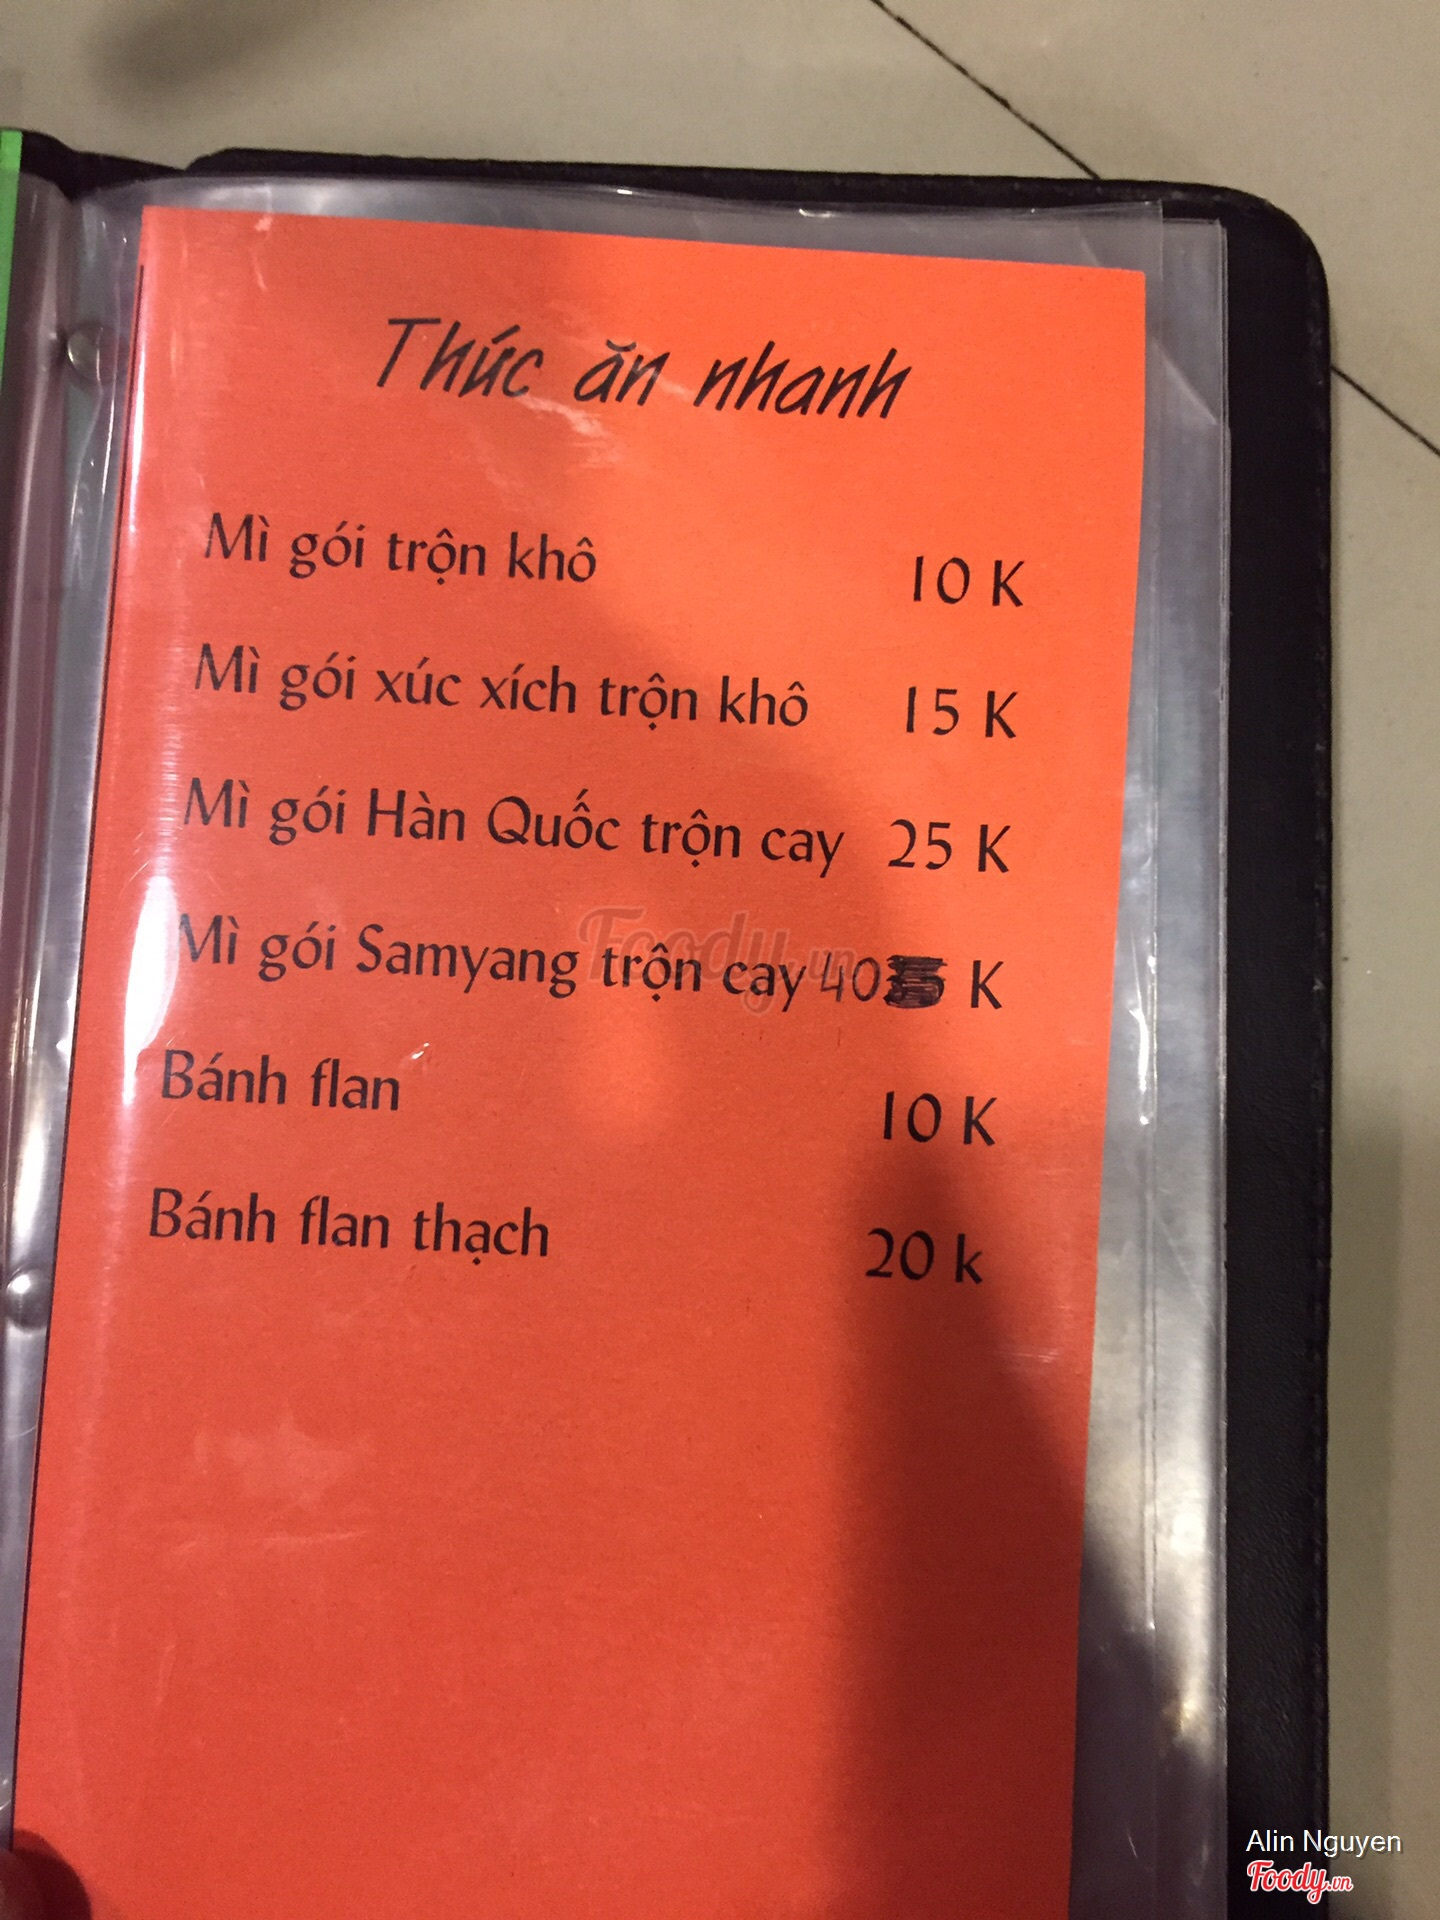 Thức ăn nhanh
Mì gói trộn khô 10 K
Mì gói xúc xích trộn khô 15 K
Mì gói Hàn Quốc trộn cay 25 K
Mì gói Samyang trộn cay 40 K
Bánh flan 10 K
Bánh flan thạch 20 k
Foody.vn
Alin Nguyen
Foody.vn